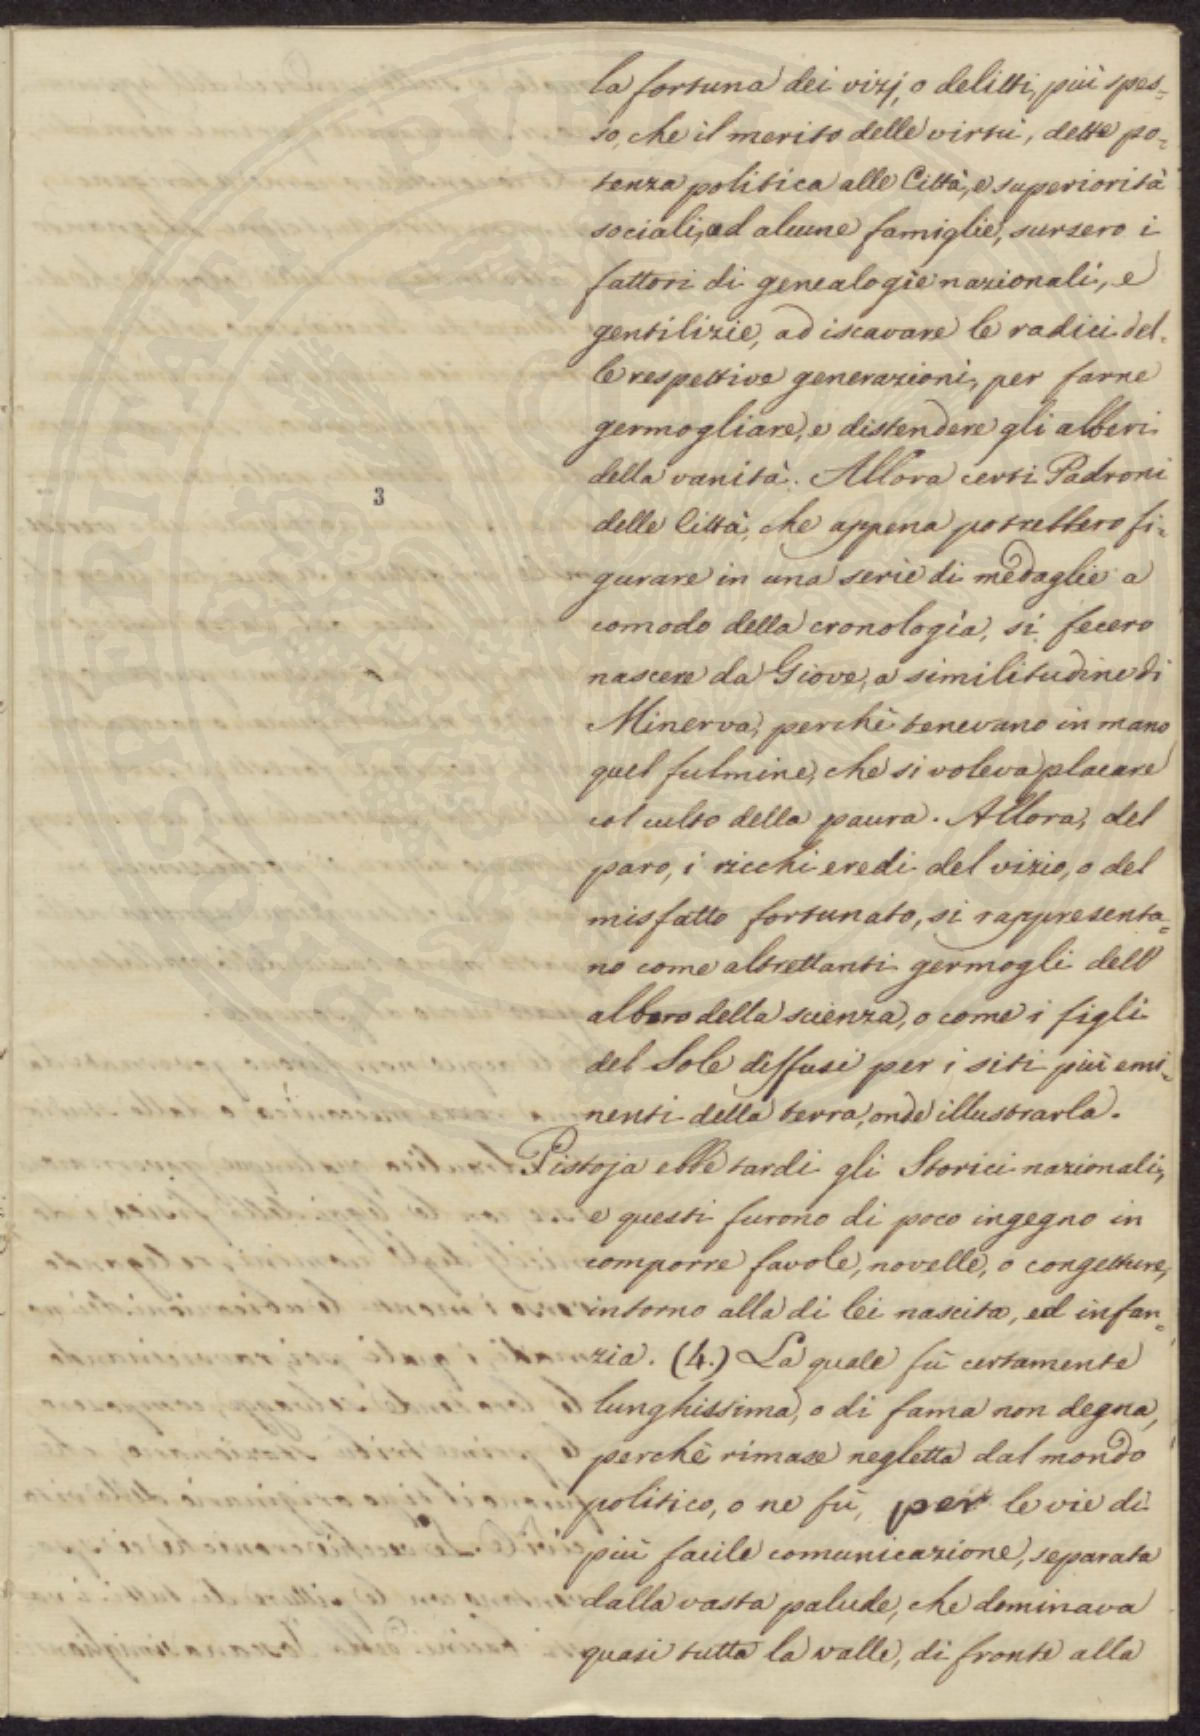 la fortuna dei vizj, o delitti, più spes=
so, che il merito delle virtù, dette po=
tenza politica alle Città, e superiorità
sociali, ad alcune famiglie, sursero i
fattori di genealogie nazionali, e
gentilizie, ad iscavare le radici del=
le respettive generazioni, per farne
germogliare, e distendere gli alberi
della vanità. Allora certi Padroni
3
delle Città, che appena potrebbero fi=
gurare in una serie di medaglie a
comodo della cronologia, si fecero
nascere da Giove, a similitudine di
Minerva, perchè tenevano in mano
quel fulmine, che si voleva placare
col culto della paura. Allora, del
paro, i ricchi eredi del vizio, o del
misfatto fortunato, si rappresenta=
no come altrettanti germogli dell'
albero della scienza, o come i figli
del Sole diffusi per i siti più emi=
nenti della terra, onde illustrarla.
Pistoja ebbe tardi gli Storici nazionali,
e questi furono di poco ingegno in
comporre favole, novelle, o congetture,
intorno alla di lei nascita, ed infan=
zia. (4.) La quale fù certamente
lunghissima, o di fama non degna,
perchè rimase negletta dal mondo
politico, o ne fù, per le vie di
più facile comunicazione, separata
dalla vasta palude, che dominava
quasi tutta la valle, di fronte alla